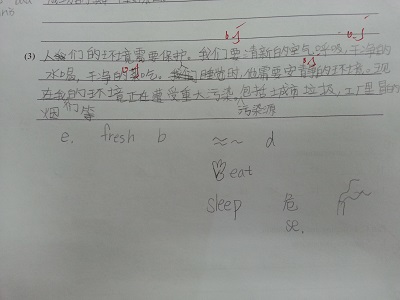 (3) 人们的环境需要保护。我们要清新的空气呼吸，干净的
水喝，干净的空气。睡觉时，需要安静的环境。现
在我的环境正在蒙受重大污染，包括城市垃圾，工厂里的
烟 等 污染源
e. fresh b ≈~ d
eat
sleep 危
se.